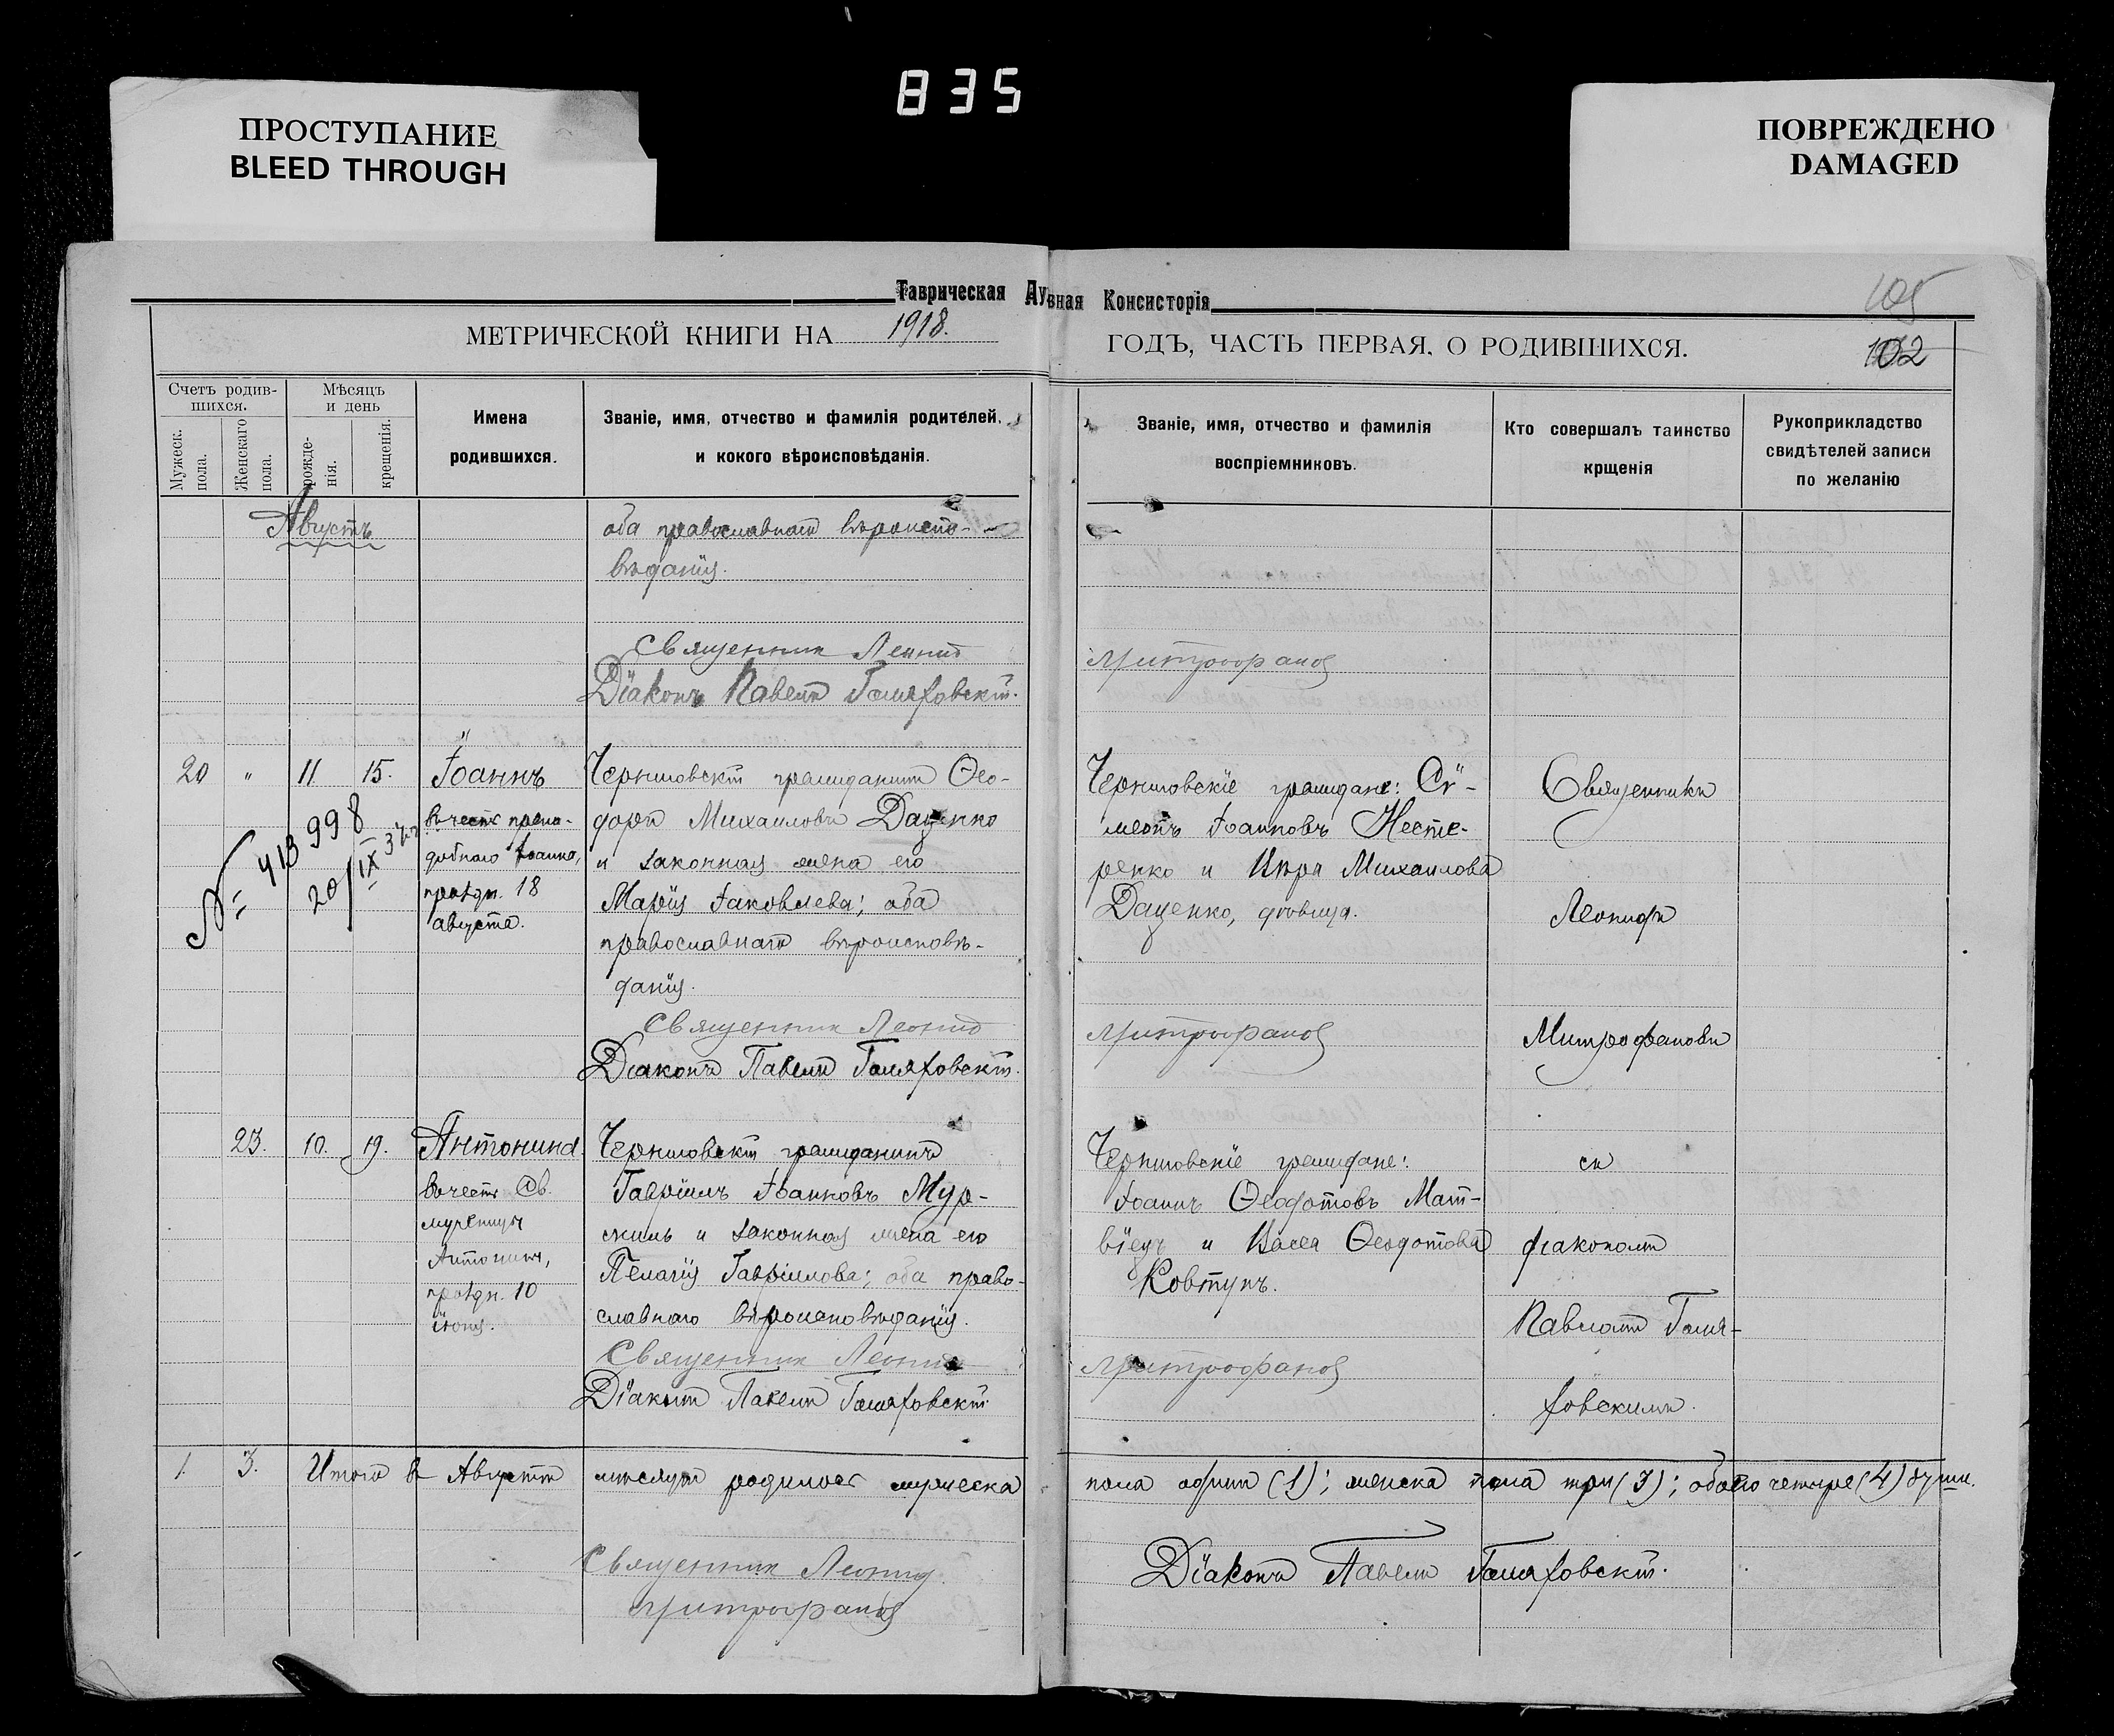 835
ПРОСТУПАНИЕ
BLEED THROUGH
ПОВРЕЖДЕНО
DAMAGED
Таврическая Духовная Консисторія
105
МЕТРИЧЕСКОЙ КНИГИ НА 1918. ГОДЪ, ЧАСТЬ ПЕРВАЯ, О РОДИВШИХСЯ.
102
Счетъ родив-
шихся.
Мужеск.
пола.
Женскаго
пола.
Мѣсяцъ
и день
рожде-
нія.
крещенія.
Имена
родившихся.
Званіе, имя, отчество и фамилія родителей,
и кокого вѣроисповѣданія.
Званіе, имя, отчество и фамилія
воспріемниковъ.
Кто совершалъ таинство
крщенія
Рукоприкладство
свидѣтелей записи
по желанію
Августъ
оба православнаго вѣроиспо-
вѣданія.
Священник Леонид
Митрофанов
Діаконъ Павелъ Галяховскій.
20 " 11 15.
Іоаннъ
въ честь препо-
добнаго Іоанна,
праздн. 18
августа.
№ 413998
20/IX 37 г
Черниговскій гражданинъ Ѳео-
доръ Михаиловъ Даценко
и законная жена его
Марія Іаковлева; оба
православнаго вѣроисповѣ-
данія.
Священник Леонид
Митрофанов
Діаконъ Павелъ Галяховскій.
Черниговскіе граждане: Сі-
меонъ Іоанновъ Несте-
ренко и Вѣра Михаилова
Даценко, дѣвица.
Священникъ
Леонидъ
Митрофановъ
23. 10. 19.
Антонина
въ честь Св.
мученицы
Антонины,
праздн. 10
іюня.
Черниговскій гражданинъ
Гавріилъ Іоанновъ Мур-
жиль и законная жена его
Пелагія Гавріилова; оба право-
славнаго вѣроисповѣданія.
Священник Леонид
Митрофанов
Діаконъ Павелъ Галяховскій.
Черниговскіе граждане:
Іоаннъ Ѳеодотовъ Мат-
вѣецъ и Васса Ѳеодотова
Ковтунъ.
съ
діакономъ
Павломъ Галя-
ховскимъ.
1. 3. Итого въ Августѣ мѣсяцѣ родилось мужеска пола одинъ (1); женска пола три (3); обоего четыре (4) души.
Священник Леонид
Митрофанов
Діаконъ Павелъ Галяховскій.